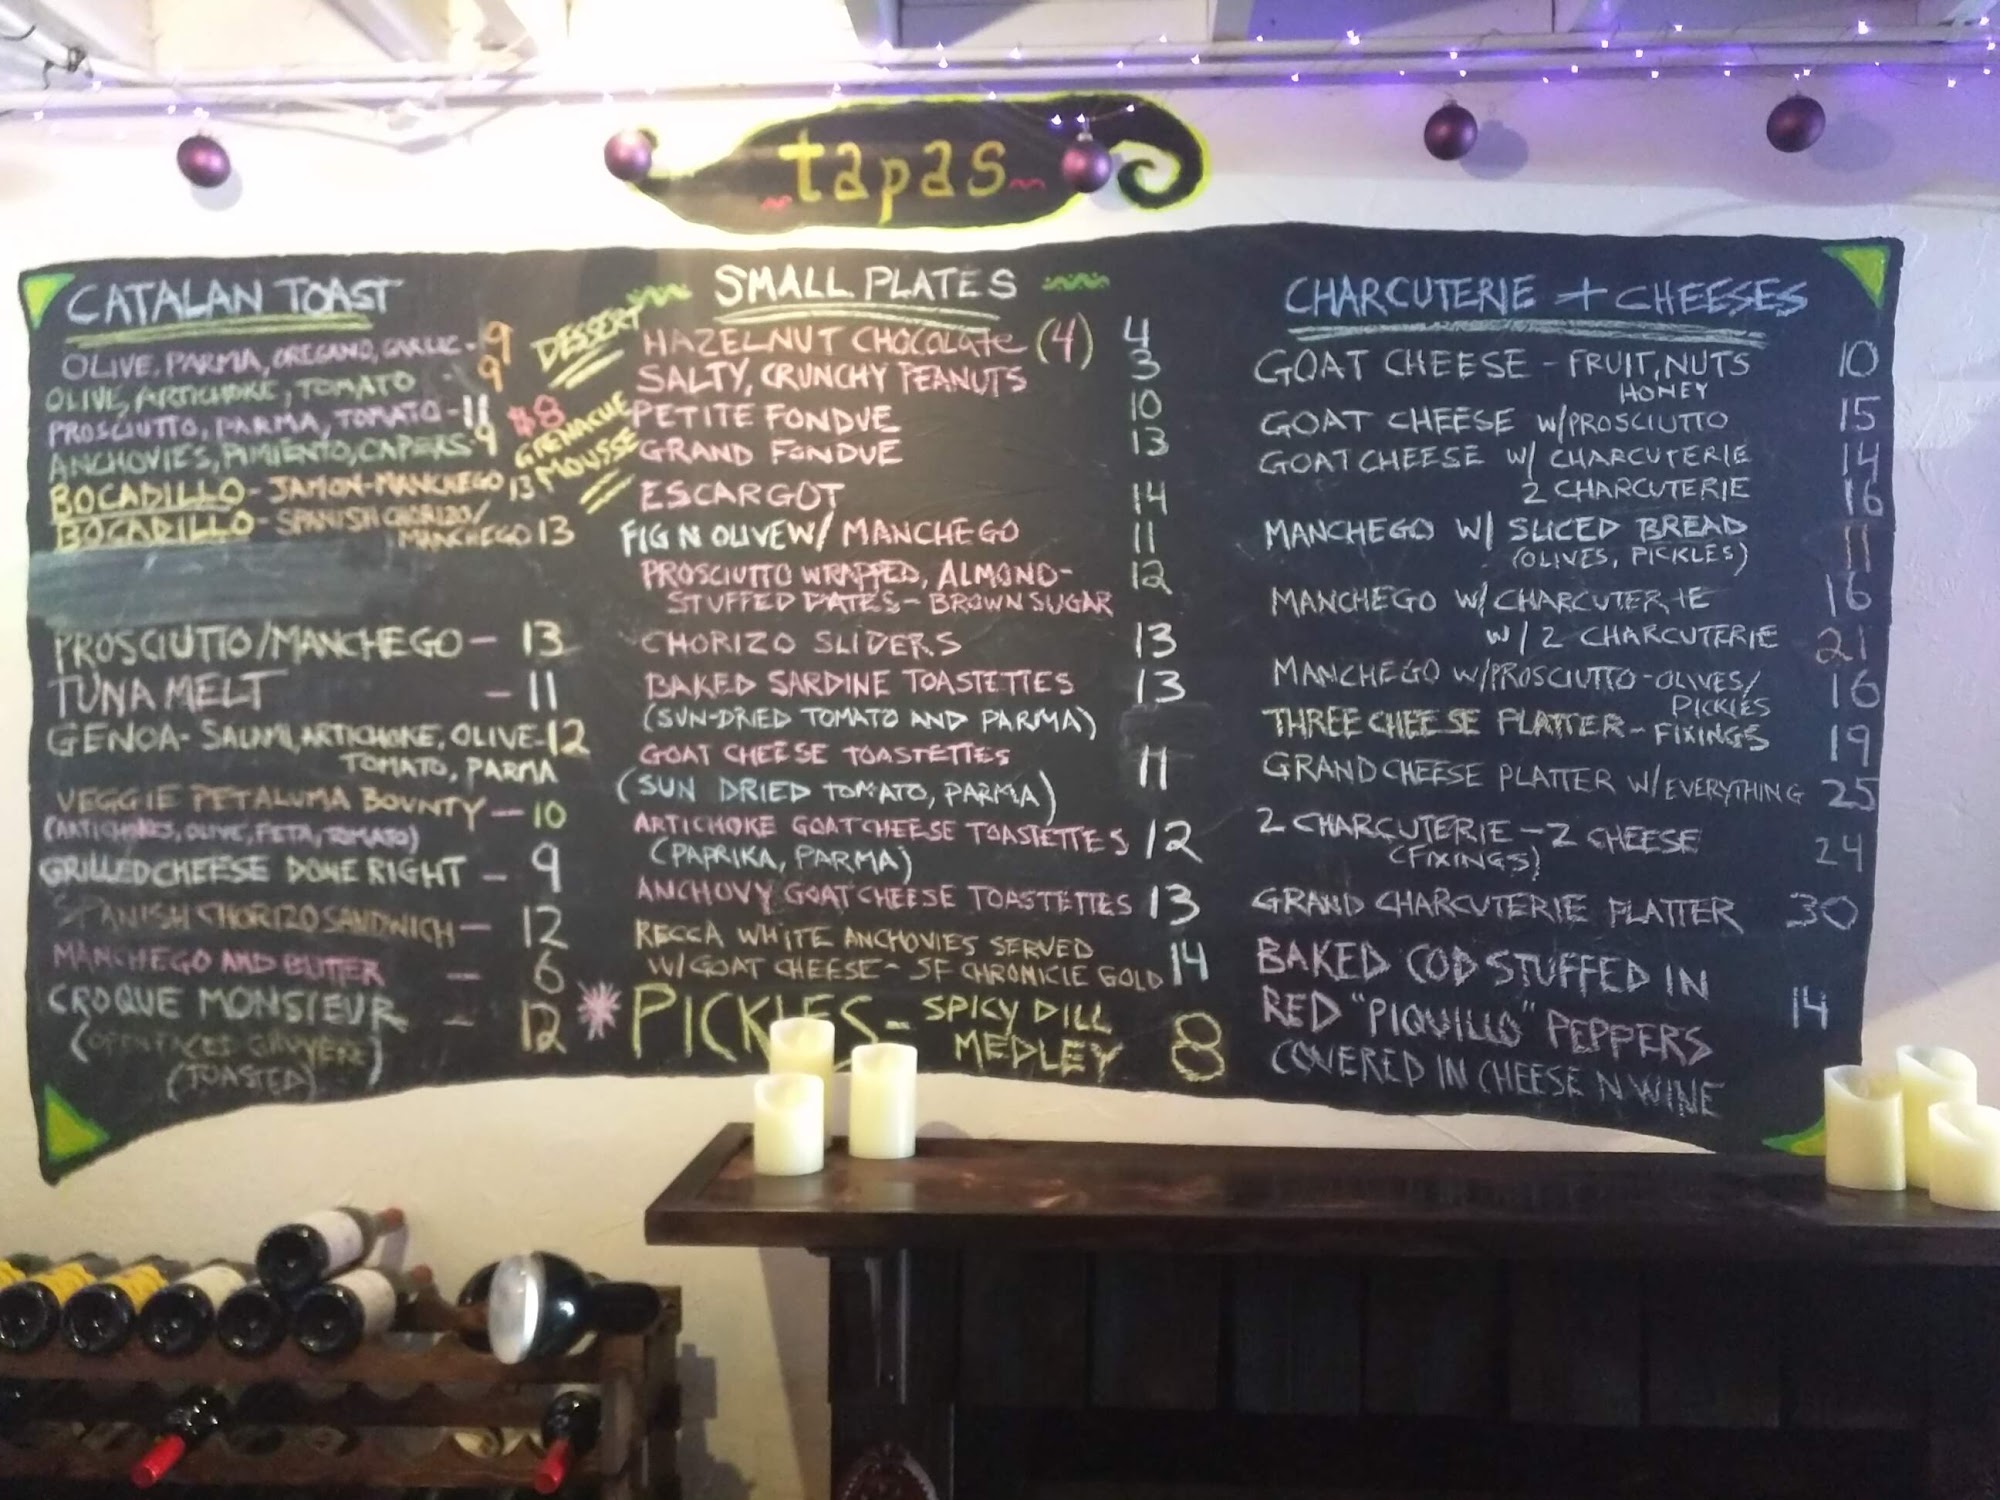 tapas
CATALAN TOAST
OLIVE, PARMA, OREGANO, GARLIC - 9
OLIVE, ARTICHOKE, TOMATO - 9
PROSCIUTTO, PARMA, TOMATO - 11
ANCHOVIES, PIMIENTO, CAPERS - 9
BOCADILLO - JAMON-MANCHEGO 13
BOCADILLO - SPANISH CHORIZO/
MANCHEGO 13
PROSCIUTTO/MANCHEGO - 13
TUNA MELT - 11
GENOA - SALAMI, ARTICHOKE, OLIVE - 12
TOMATO, PARMA
VEGGIE PETALUMA BOUNTY - 10
(ARTICHOKES, OLIVE, FETA, TOMATO)
GRILLED CHEESE DONE RIGHT - 9
SPANISH CHORIZO SANDWICH - 12
MANCHEGO AND BUTTER - 6
CROQUE MONSIEUR - 12
(OPEN FACED GRUYERE)
(TOASTED)
DESSERT
$8
GRENACHE
MOUSSE
SMALL PLATES
HAZELNUT CHOCOLATE (4) 4
SALTY, CRUNCHY PEANUTS 3
PETITE FONDUE 10
GRAND FONDUE 13
ESCARGOT 14
FIG N OLIVE W/ MANCHEGO 11
PROSCIUTTO WRAPPED, ALMOND- 12
STUFFED DATES - BROWN SUGAR
CHORIZO SLIDERS 13
BAKED SARDINE TOASTETTES 13
(SUN-DRIED TOMATO AND PARMA)
GOAT CHEESE TOASTETTES 11
(SUN DRIED TOMATO, PARMA)
ARTICHOKE GOAT CHEESE TOASTETTES 12
(PAPRIKA, PARMA)
ANCHOVY GOAT CHEESE TOASTETTES 13
RECCA WHITE ANCHOVIES SERVED
W/ GOAT CHEESE - SF CHRONICLE GOLD 14
PICKLES - SPICY DILL
MEDLEY 8
CHARCUTERIE + CHEESES
GOAT CHEESE - FRUIT, NUTS 10
HONEY
GOAT CHEESE W/PROSCIUTTO 15
GOAT CHEESE W/ CHARCUTERIE 14
2 CHARCUTERIE 16
MANCHEGO W/ SLICED BREAD 11
(OLIVES, PICKLES)
MANCHEGO W/ CHARCUTERIE 16
W/ 2 CHARCUTERIE 21
MANCHEGO W/PROSCIUTTO - OLIVES/ 16
PICKLES
THREE CHEESE PLATTER - FIXINGS 19
GRAND CHEESE PLATTER W/EVERYTHING 25
2 CHARCUTERIE - 2 CHEESE 24
(FIXINGS)
GRAND CHARCUTERIE PLATTER 30
BAKED COD STUFFED IN
RED "PIQUILLO" PEPPERS 14
COVERED IN CHEESE N WINE